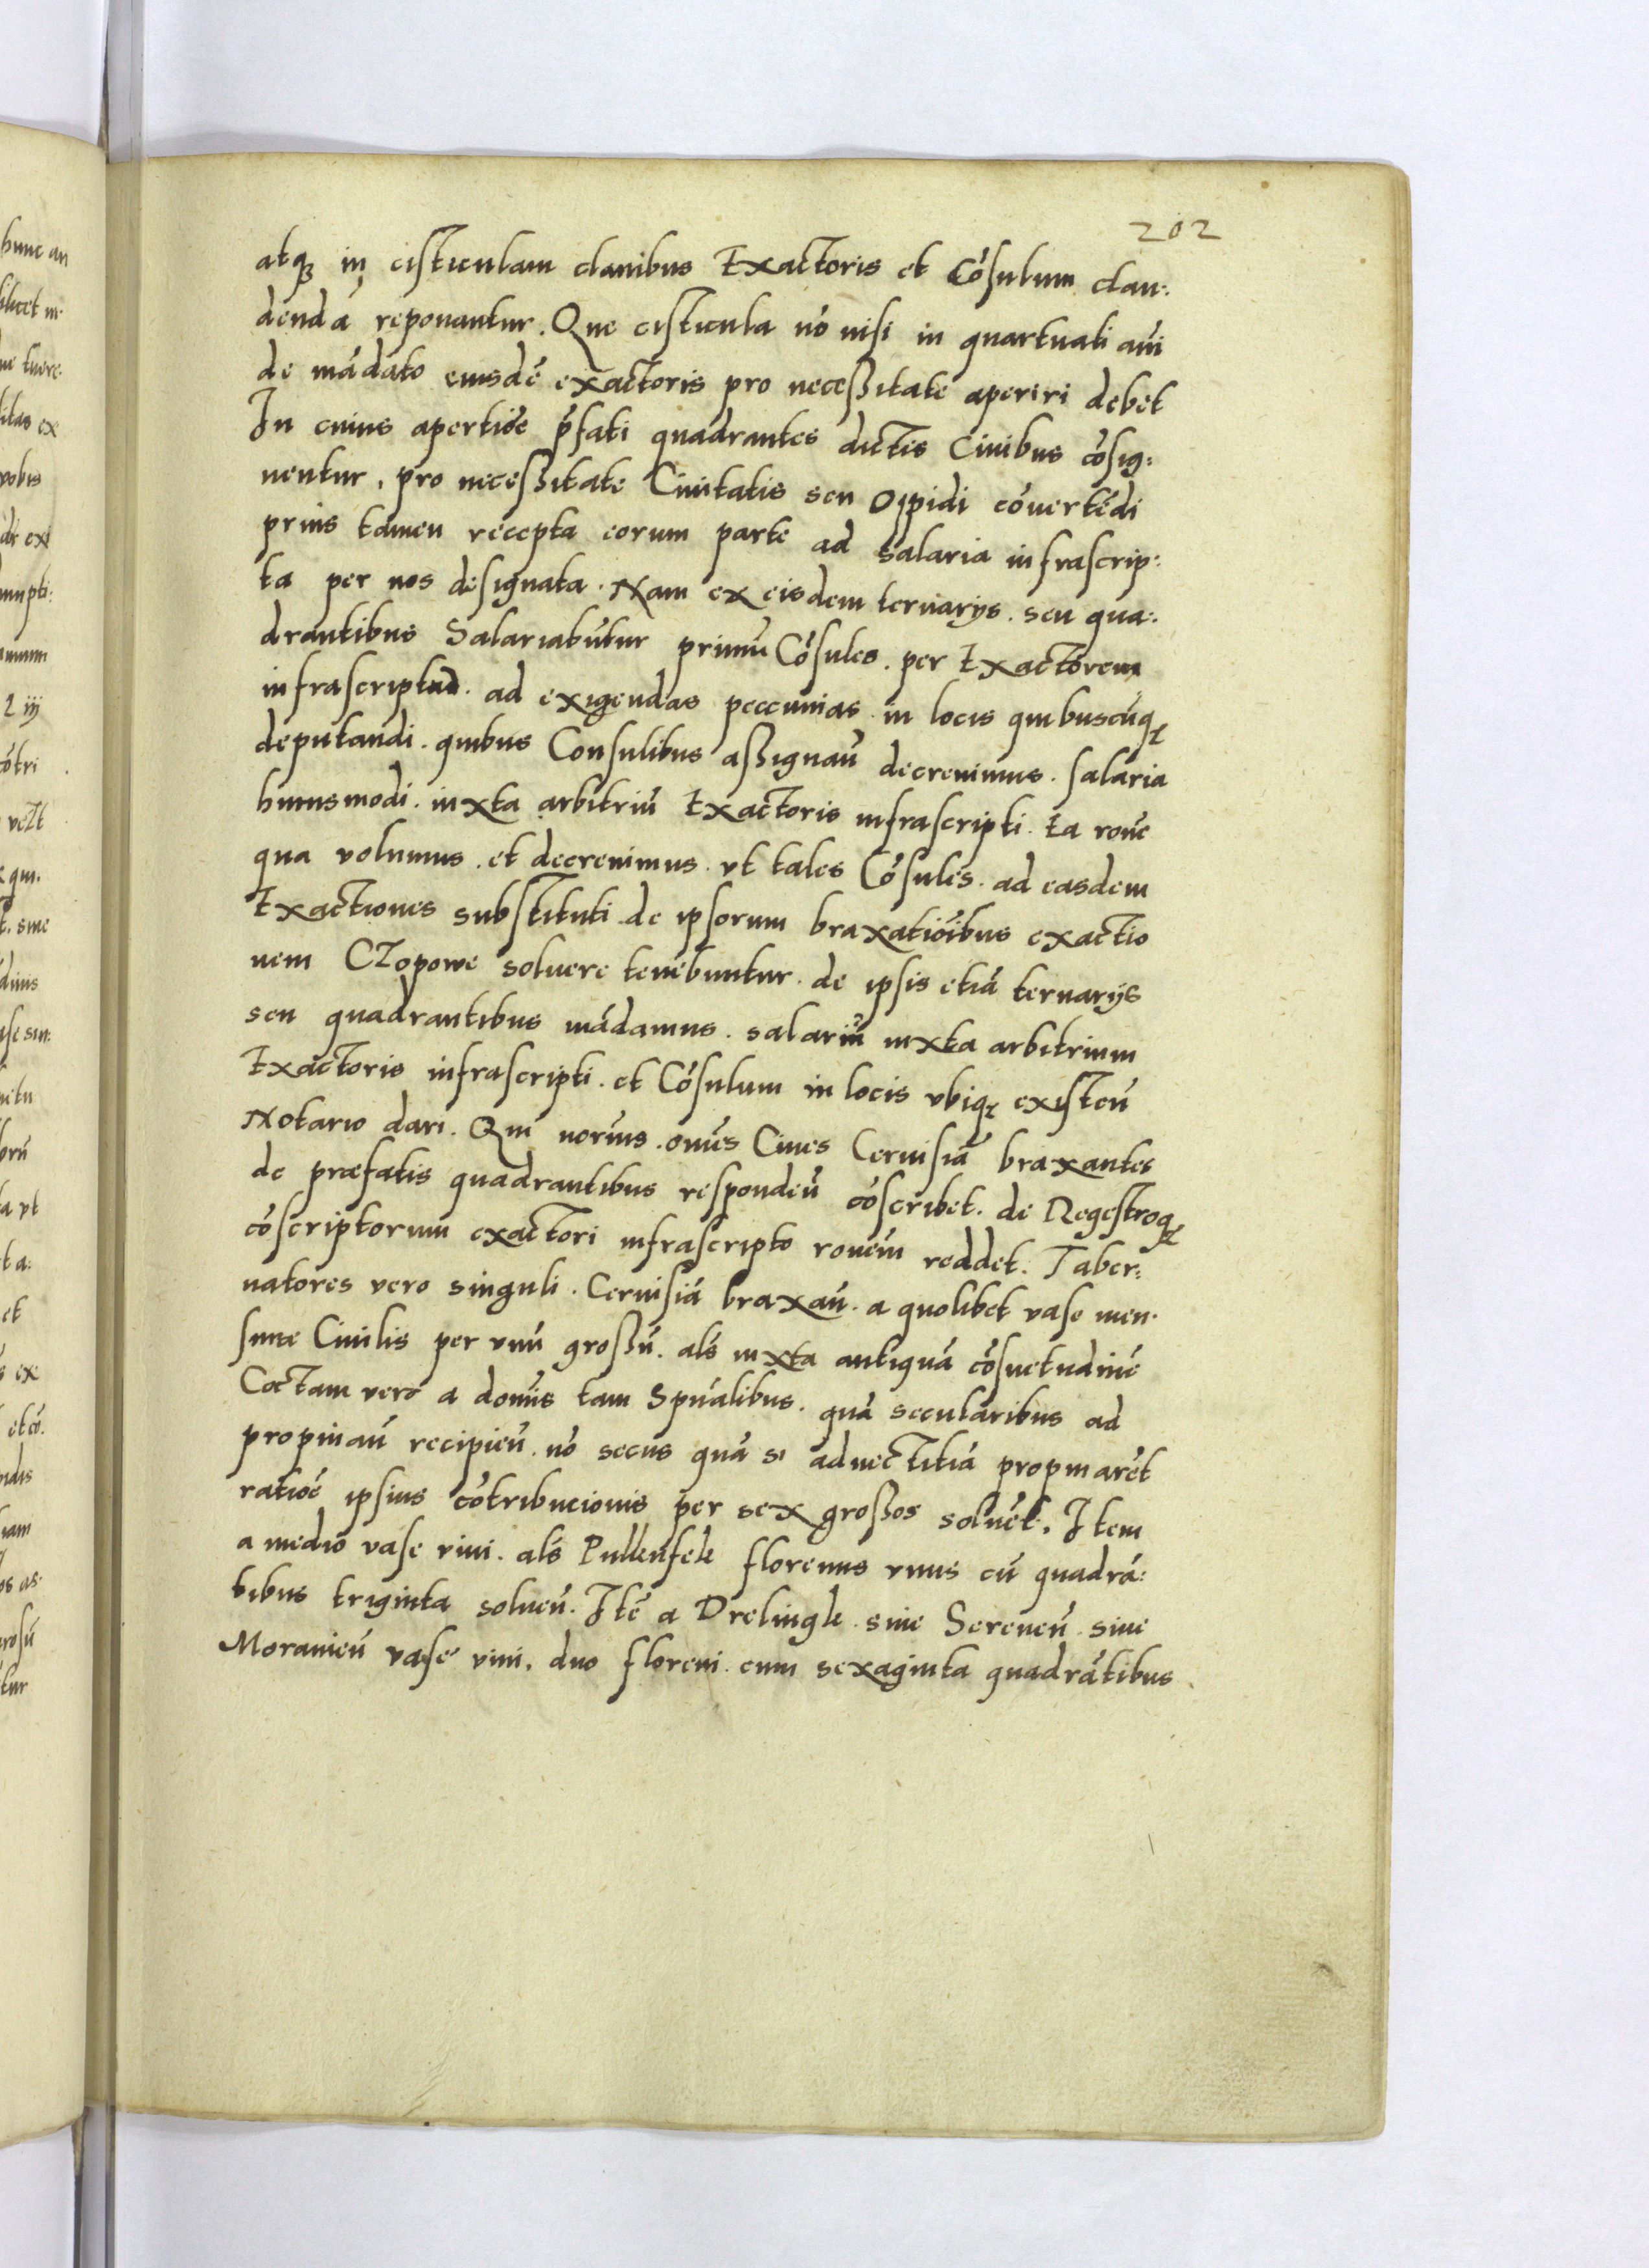 202
atq̃ in cisticulam clauibus Exactoris et Cõsulum clau:
dendã reponantur. Que cisticula nõ nisi in quartuali añi
de mãdato eiusdẽ exactoris pro necessitate aperiri debet
In cuius apertiõe p̃fati quadrantes dictis Ciuibus cõsig:
nentur, pro necessitate Ciuitatis seu Oppidi cõuertẽdi
prius tamen recepta eorum parte ad salaria infrascrip:
ta per nos designata. Nam ex eisdem ternarijs. seu qua:
drantibus Salariabũtur primũ Cõsules. per Exactorem
infrascriptum. ad exigendas peccunias in locis quibuscũq̃
deputandi. quibus Consulibus assignañ decreuimus. salaria
huiusmodi. iuxta arbitriũ Exactoris infrascripti. Ea roñe
qua volumus. et decreuimus. vt tales Cõsules. ad easdem
Exactiones substituti de ipsorum braxatiõibus exactio
nem Czopowe soluere tenebuntur. de ipsis etiã ternarijs
seu quadrantibus mãdamus. salariũ iuxta arbitrium
Exactoris infrascripti. et Cõsulum in locis vbiq̃ existeñ
Notario dari. Qui notrius. omẽs Ciues Ceruisiã braxantes
de praefatis quadrantibus respondeñ cõscribet. de Regestroq̃
cõscriptorum exactori infrascripto roñem reddet. Taber:
natores vero singuli. Ceruisiã braxañ. a quolibet vase men.
surae Ciuilis per vnũ grossũ. als̃ iuxta antiquã cõsuetudinẽ
Coctam vero a domĩs tam Spũalibus. quã secularibus ad
propinañ recipieñ. nõ secus quã si aduectitiã propinarẽt
ratiõe ipsius cõtribucionis per sex grossos soluẽt. Item
a medio vase vini. als̃ Pullenfele florenus vnus cũ quadrã:
tibus triginta solueñ. Itẽ a Drelingle. siue Sereneñ. siue
Morauieñ vase vini. duo floreni. cum sexaginta quadrãtibus